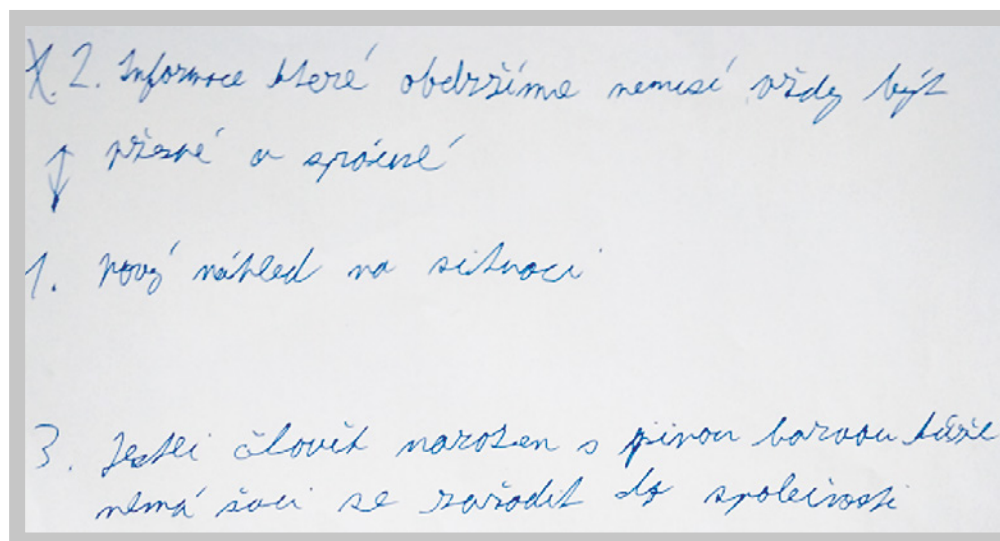 2. Informace které obdržíme nemusí vždy být
přesné a správné
1. Nový náhled na situaci
3. Jestli člověk narozen s jinou barvou kůže
nemá šanci se zařadit do společnosti